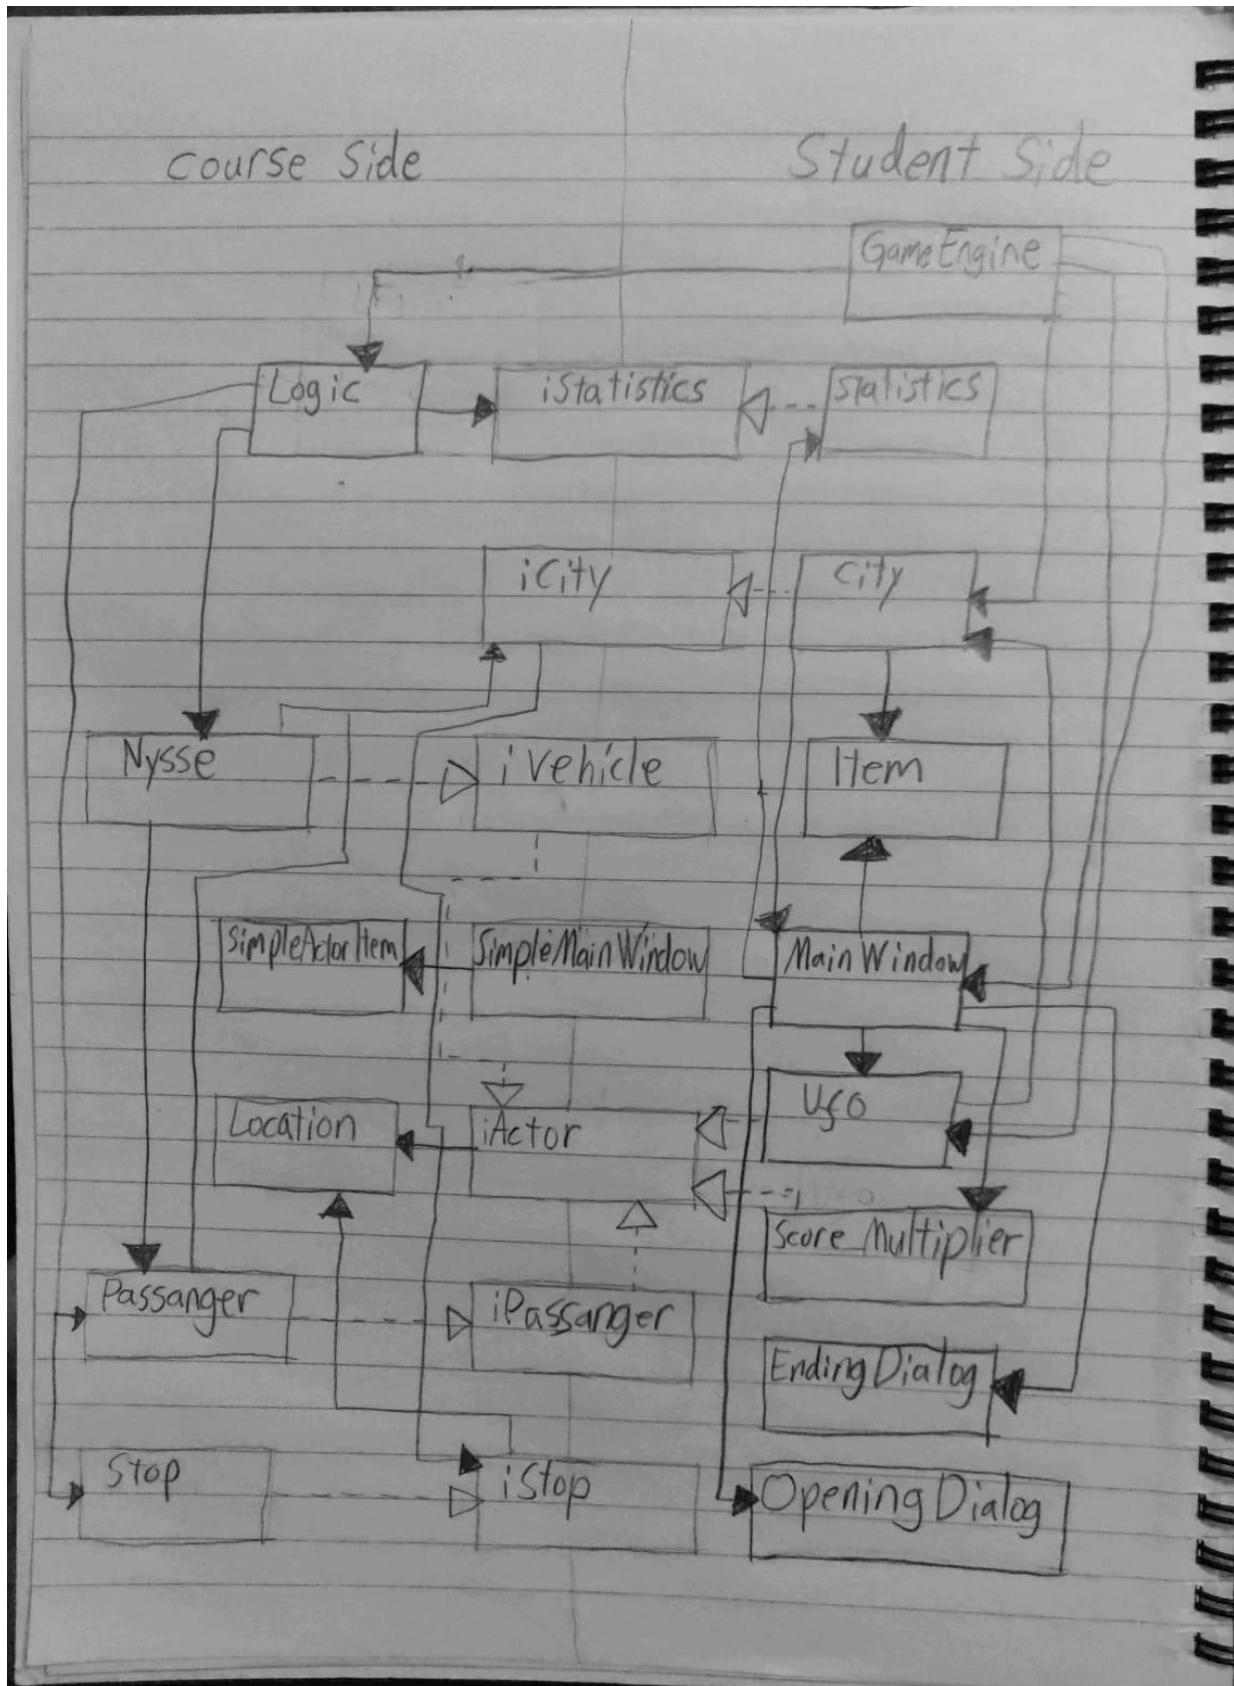 Course Side
Student Side
GameEngine
Logic
iStatistics
Statistics
iCity
City
Nysse
iVehicle
Item
SimpleActorItem
SimpleMainWindow
MainWindow
Location
iActor
Ufo
Score Multiplier
Passanger
iPassanger
EndingDialog
Stop
iStop
OpeningDialog